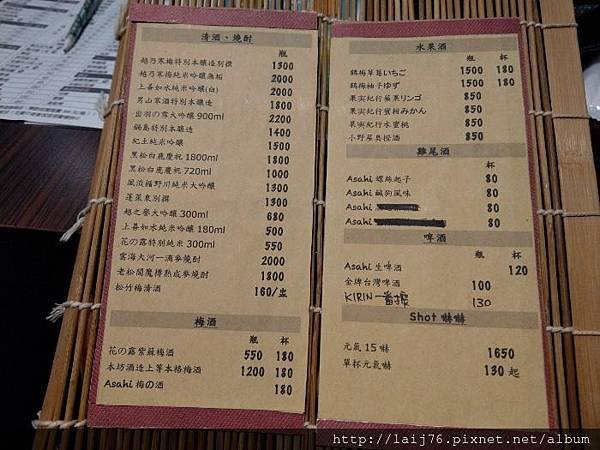 清酒、燒酎
瓶
越乃寒梅特別本釀造別撰 1300
越乃寒梅純米吟釀無垢 2000
上善如水純米吟釀(白) 2000
男山寒酒特別本釀造 1800
出羽の露大吟釀 900ml 2200
鍋島特別本釀造 1400
紀土純米吟釀 1500
黑松白鹿慶祝 1800ml 1800
黑松白鹿慶祝 720ml 1000
風波福野川純米大吟釀 1300
蓬萊泉別撰 1300
越之譽大吟釀 300ml 680
上善如水純米吟釀 180ml 500
花の露特別純米 300ml 550
雲海大河一滴麥燒酎 2000
老松閻魔樽熟成麥燒酎 1800
松竹梅清酒 160/盅
梅酒
瓶 杯
花の露紫蘇梅酒 550 180
本坊酒造上等本格梅酒 1200 180
Asahi 梅の酒 180
水果酒
瓶 杯
鶴梅草莓いちご 1500 180
鶴梅柚子ゆず 1500 180
果実紀行蘋果リンゴ 850
果実紀行蜜柑みかん 850
果実紀行水蜜桃 850
小野屋奥橙酒 850
雞尾酒
杯
Asahi 螺絲起子 80
Asahi 鹹狗風味 80
Asahi 80
Asahi 80
啤酒
瓶 杯
Asahi 生啤酒 120
金牌台灣啤酒 100
KIRIN 一番搾 130
Shot 嚇嚇
元氣 15 嚇 1650
單杯元氣嚇 130 起
http://laij76.pixnet.net/album